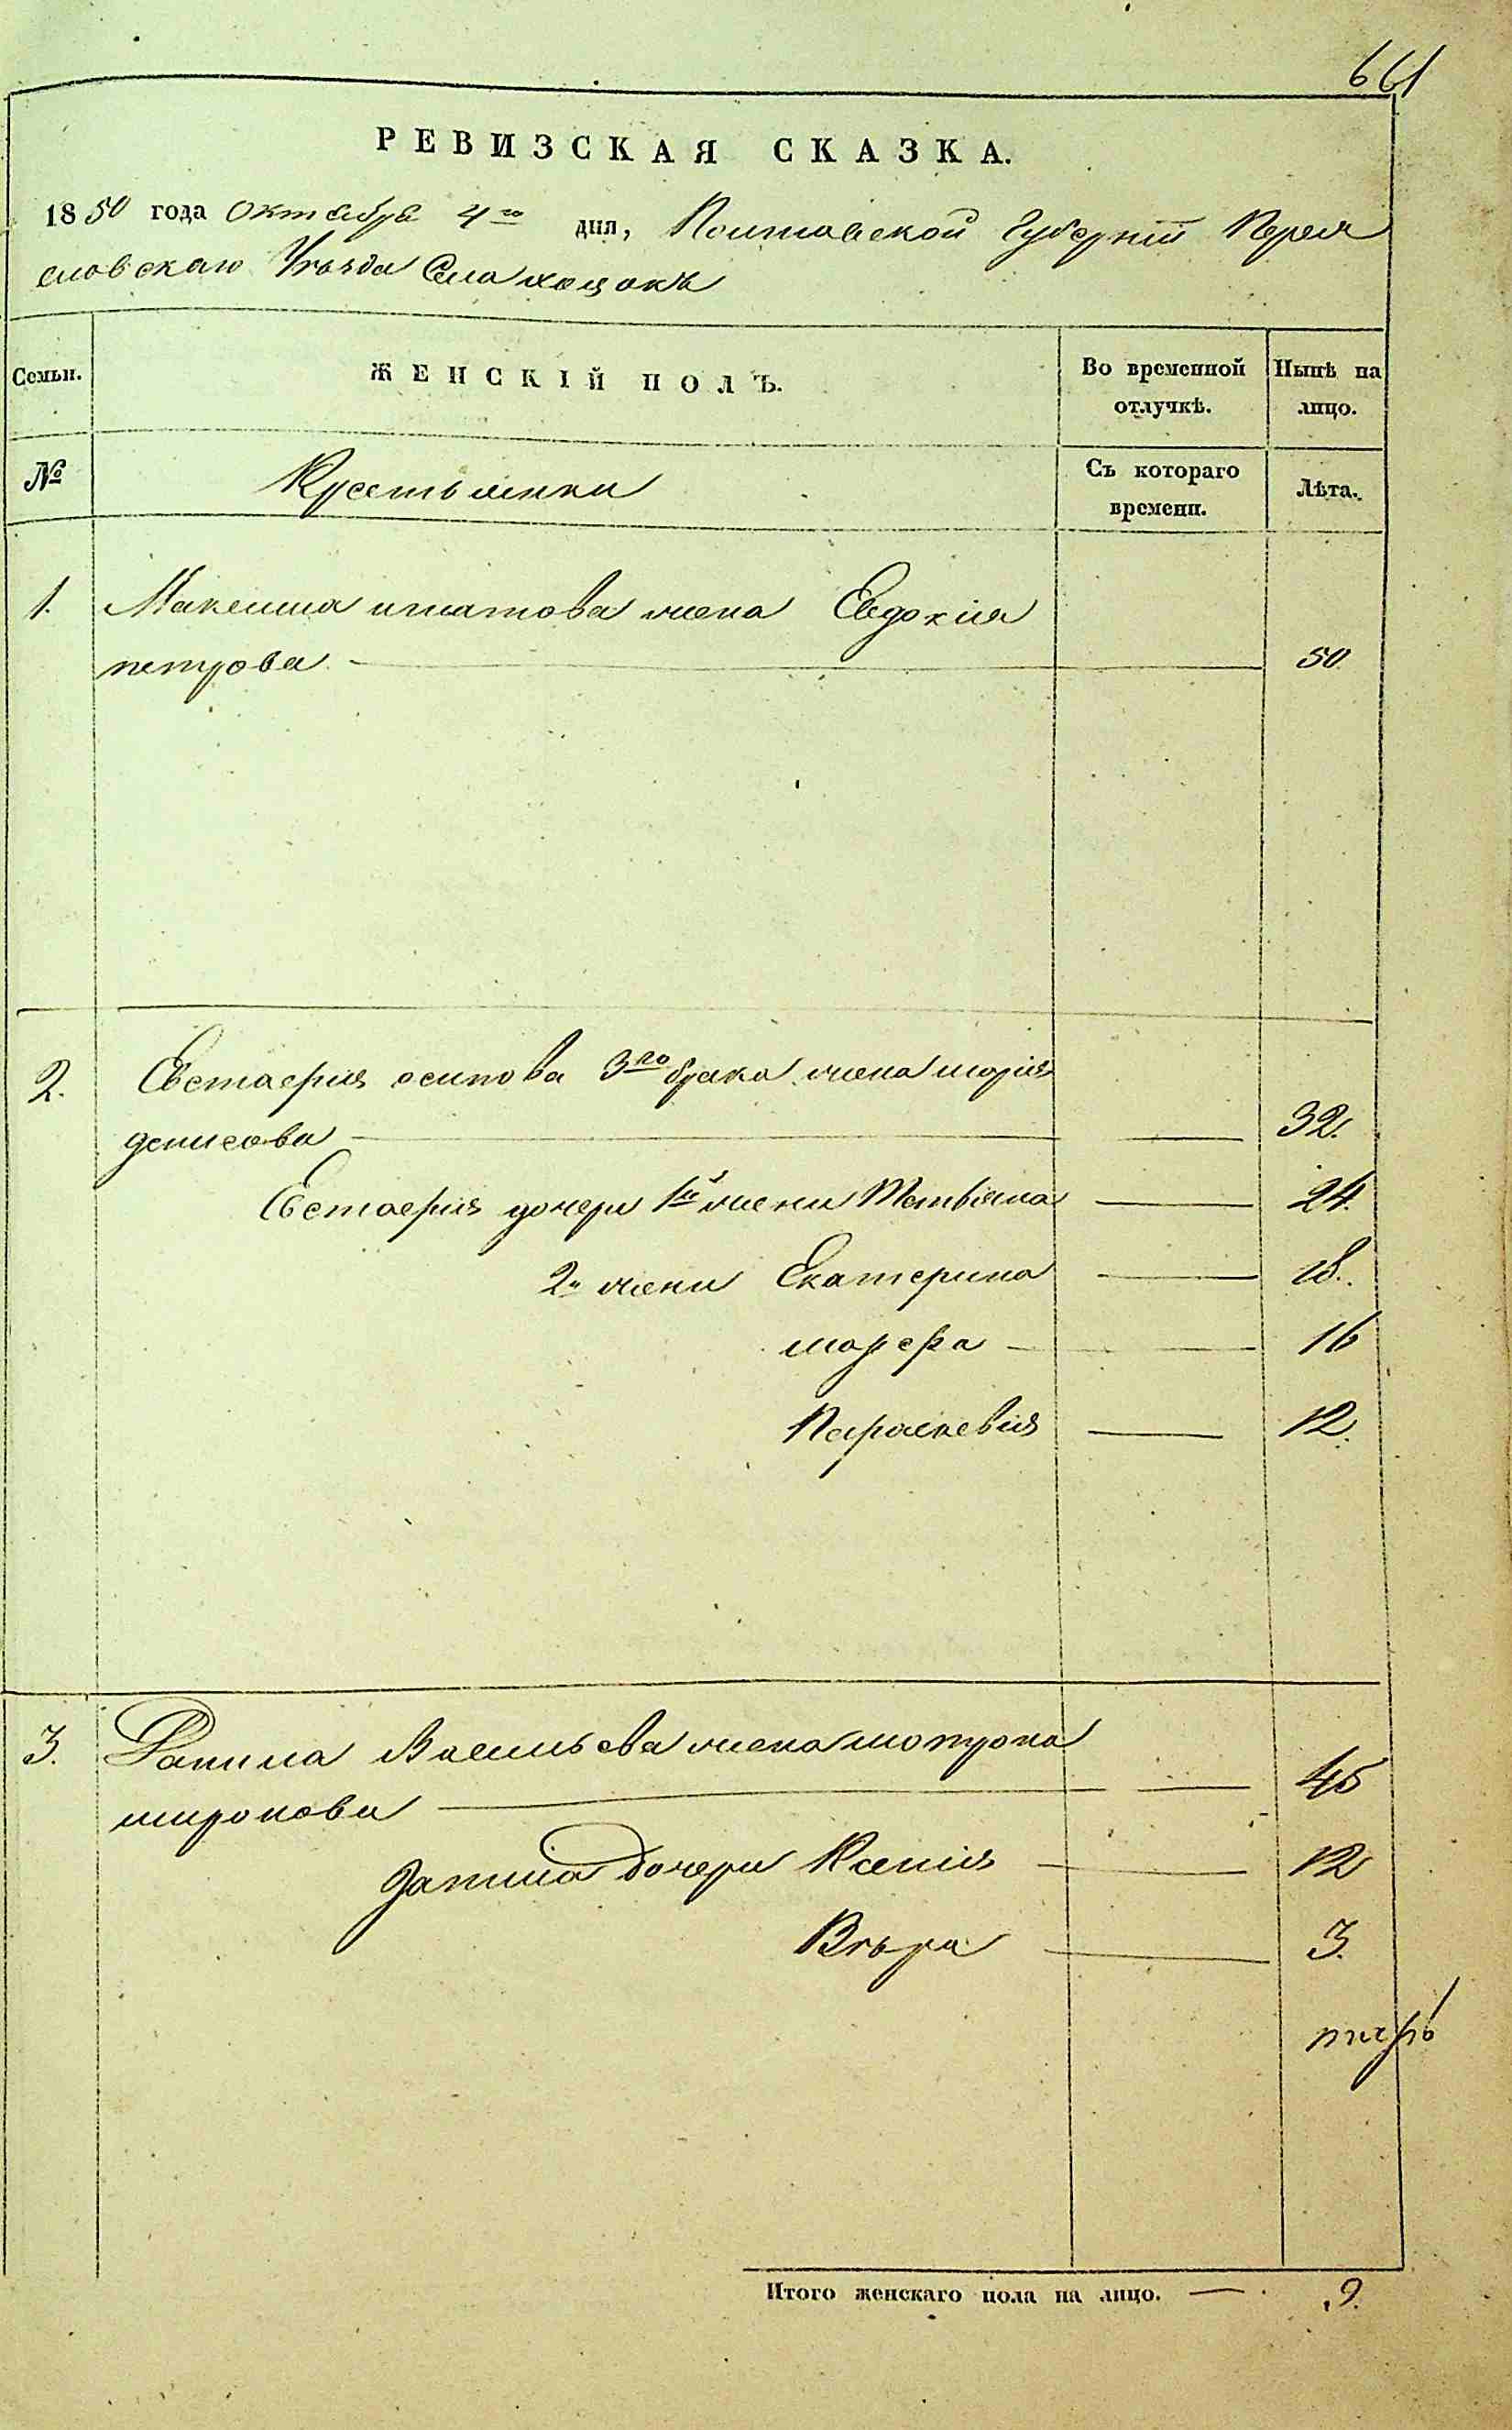 661
РЕВИЗСКАЯ СКАЗКА.
1850 года Октября 4го дня, Полтавской Губерніи Перея
словскаго Уѣзда Села хоцокъ
Семьи. ЖЕНСКІЙ ПОЛЪ. Во временной отлучкѣ. Нынѣ на лицо.
№ Крестьянки Съ котораго времени. Лѣта.
1. Максима игнатова жена Евдокія
петрова 50
2. Евстафія осипова 3го брака жена марія
денисова 32.
Евстафія дочери 1й жены Татьяна 24.
2й жены Екатерина 18.
марфа 16
Параскевія 12.
3. Данила Васильева жена матрона
миронова 45
данила дочери Ксенія 12
Вѣра 3.
Итого женскаго пола на лицо. 9.